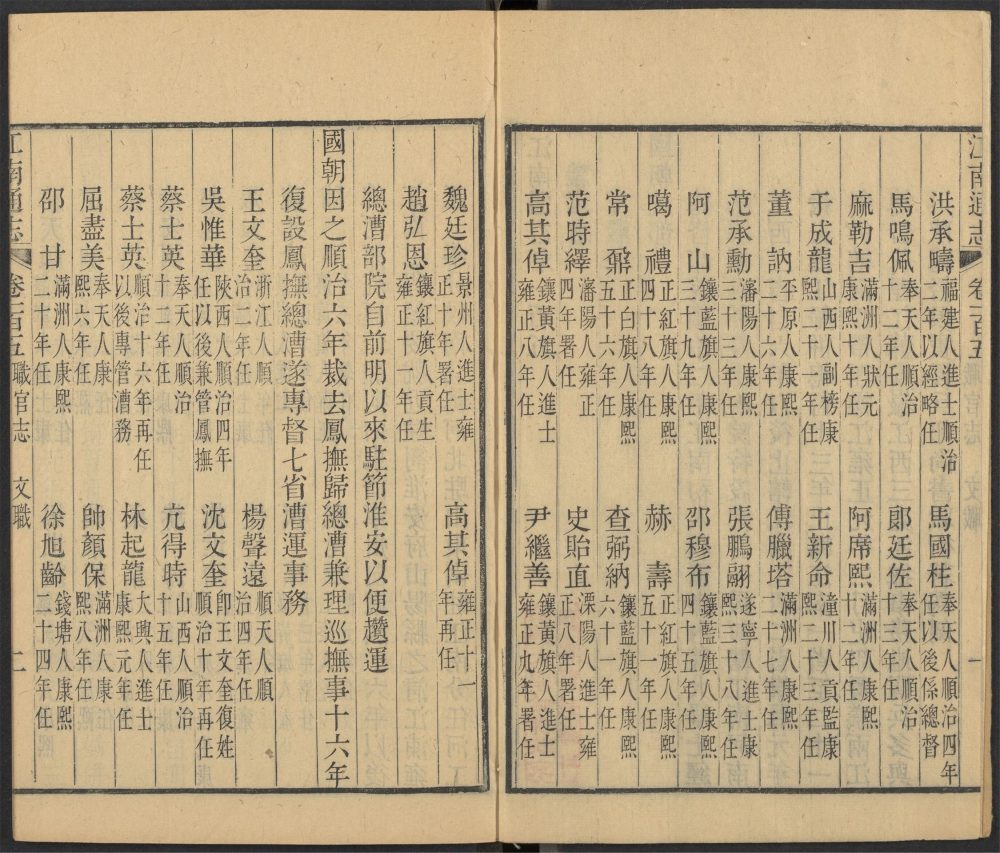 江南通志 卷一百五 一
洪承疇 福建人進士順治二年以經略任 馬國柱 奉天人順治四年任以後係總督
馬鳴佩 奉天人順治十二年署任 郎廷佐 奉天人順治十三年任
麻勒吉 滿洲人狀元康熙十年任 阿席熙 滿洲人康熙十二年任
于成龍 山西人副榜康熙二十一年任 王新命 潼川人貢監康熙二十三年任
董訥 平原人康熙二十六年任 傅臘塔 滿洲人康熙二十七年任
范承勳 瀋陽人康熙三十三年任 張鵬翮 遂寧人進士康熙三十八年任
阿山 鑲藍旗人康熙三十九年任 邵穆布 鑲藍旗人康熙四十五年任
噶禮 正紅旗人康熙四十八年任 赫壽 正紅旗人康熙五十一年任
常鼐 正白旗人康熙五十六年任 查弼納 鑲藍旗人康熙六十一年任
范時繹 瀋陽人雍正四年署任 史貽直 溧陽人進士雍正八年署任
高其倬 鑲黃旗人進士雍正八年任 尹繼善 鑲黃旗人進士雍正九年署任
魏廷珍 景州人進士雍正十年署任 高其倬 雍正十一年再任
趙弘恩 鑲紅旗人貢生雍正十一年任
總漕部院自前明以來駐節淮安以便趲運
國朝因之順治六年裁去鳳撫歸總漕兼理巡撫事十六年
復設鳳撫總漕遂專督七省漕運事務
王文奎 浙江人順治二年任 楊聲遠 順天人順治四年任
吳惟華 陝西人順治四年任以後兼管鳳撫 沈文奎 卽王文奎復姓順治十年再任
蔡士英 奉天人順治十二年任 亢得時 山西人順治十五年任
蔡士英 順治十六年再任以後專管漕務 林起龍 大興人進士康熙元年任
屈盡美 奉天人康熙六年任 帥顏保 滿洲人康熙八年任
邵甘 滿洲人康熙二十年任 徐旭齡 錢塘人康熙二十四年任
江南通志 卷一百五 職官志 文職 二